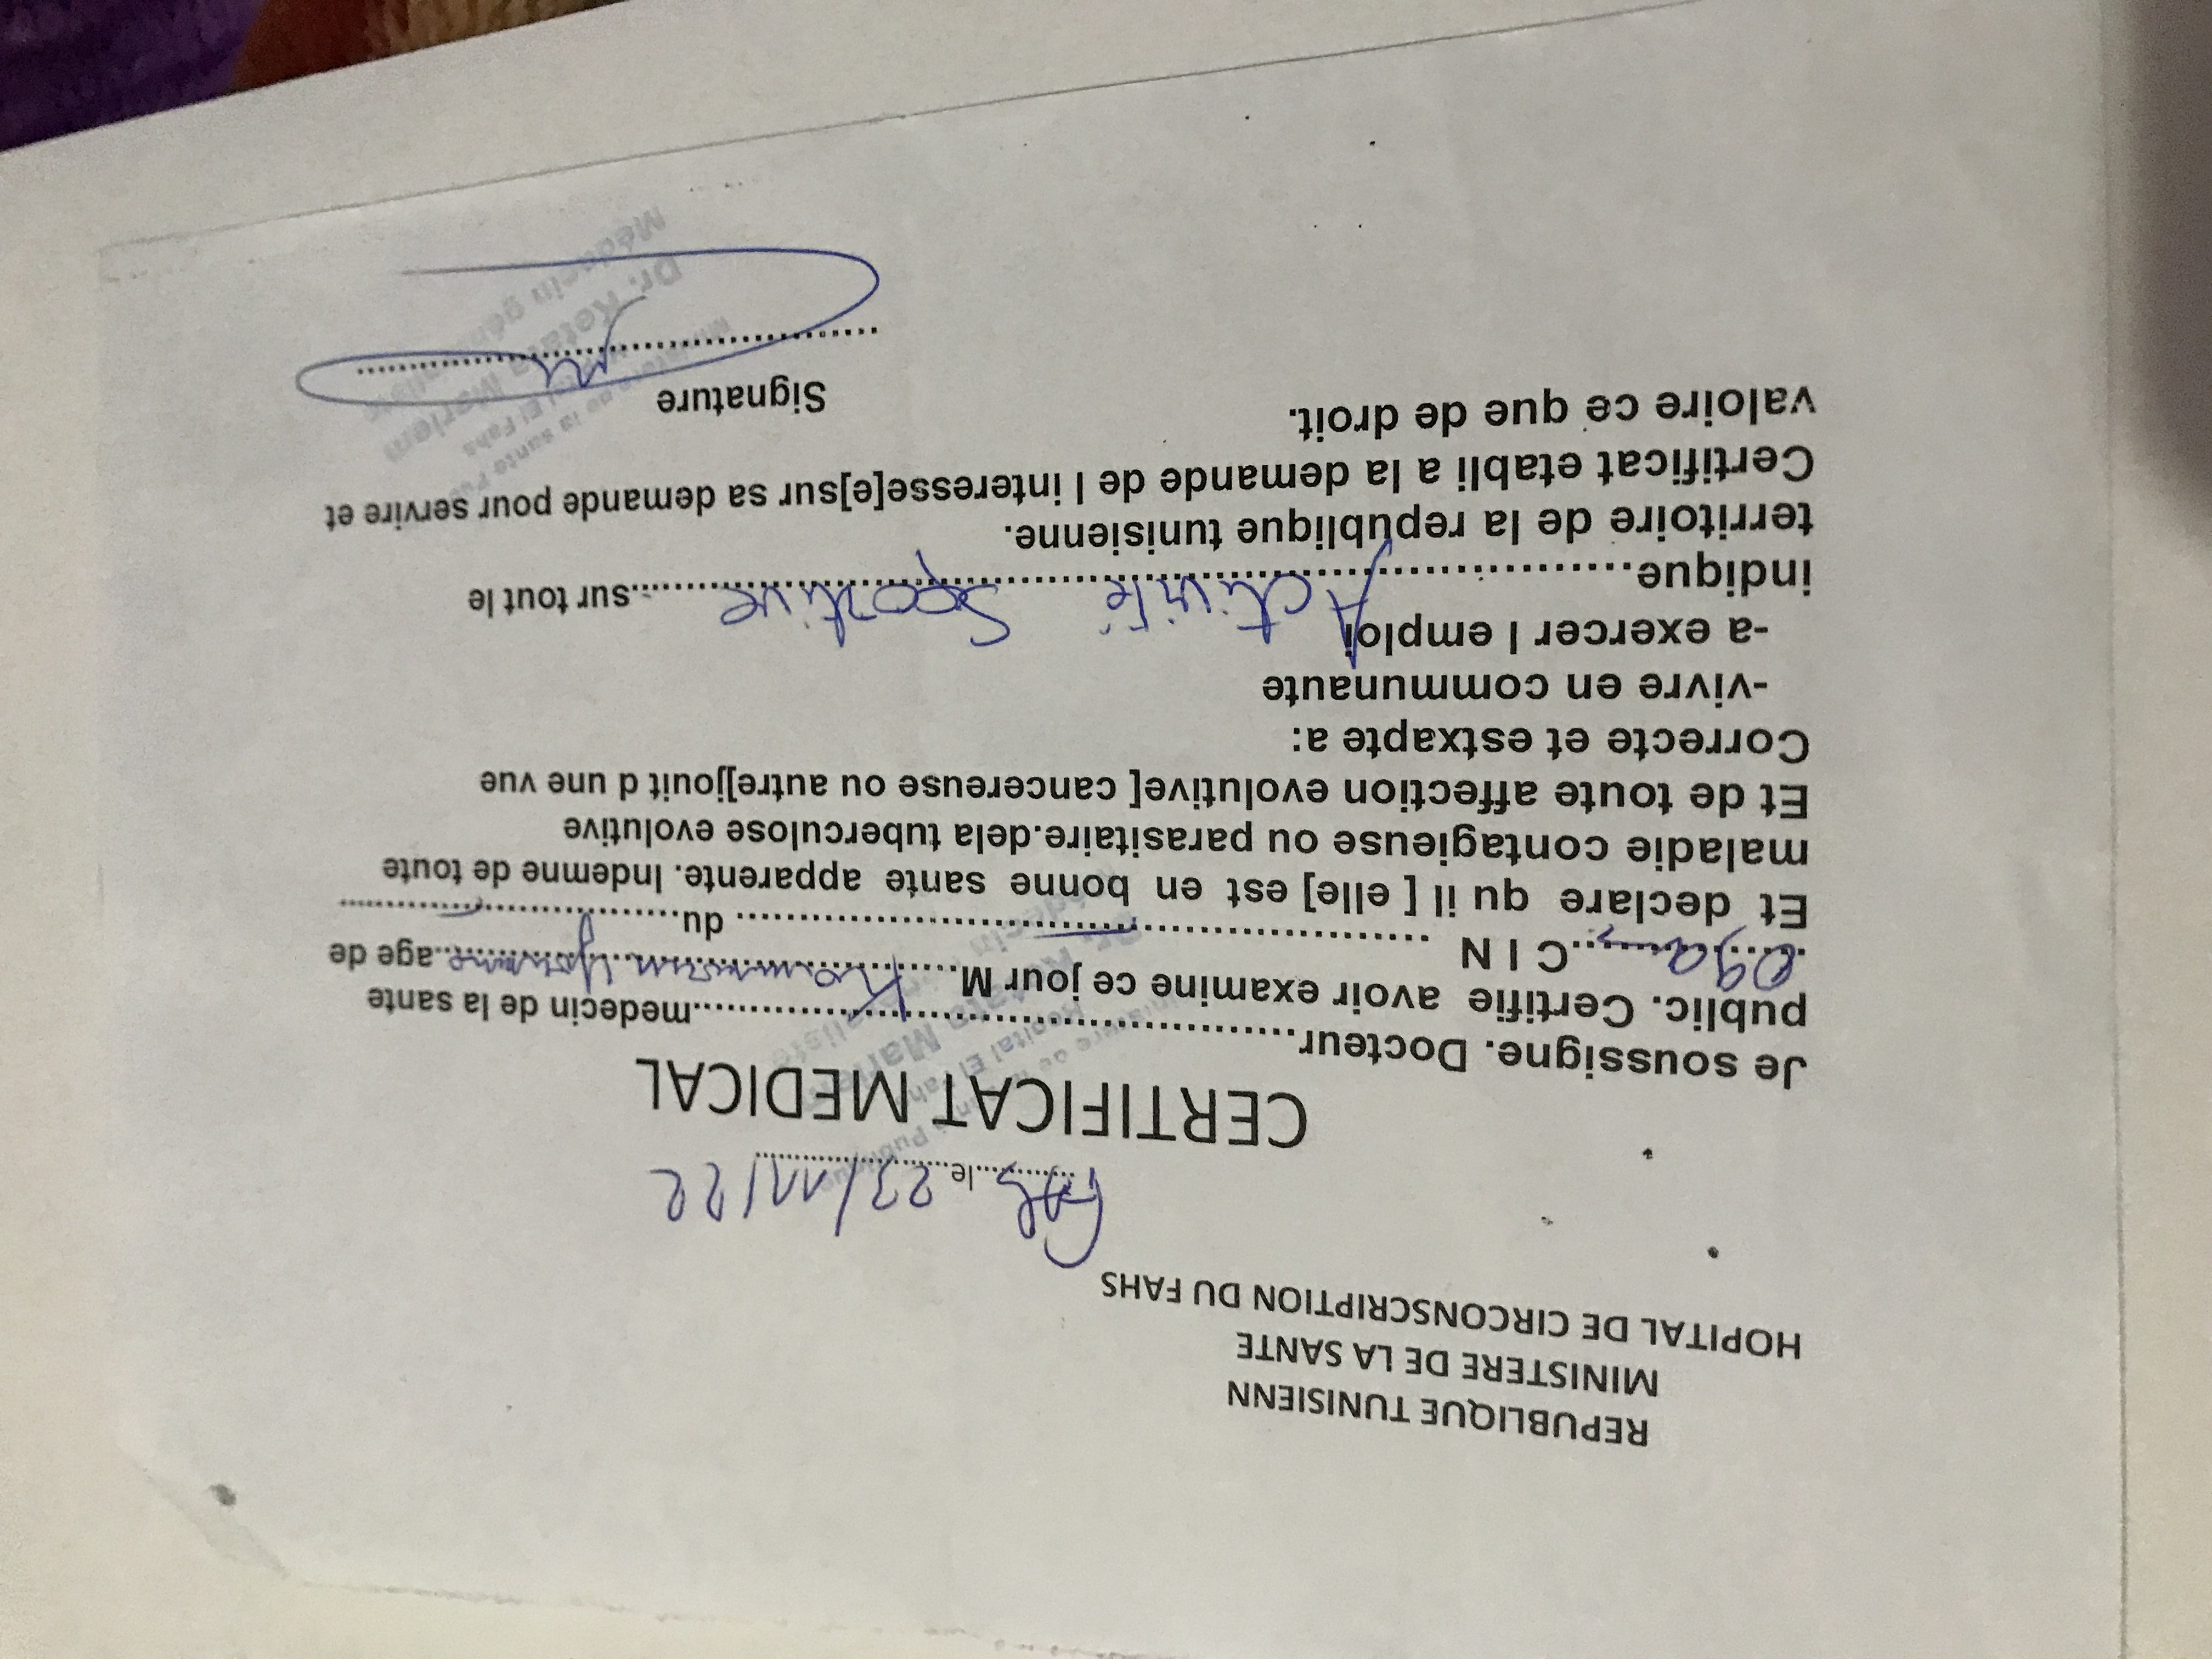 REPUBLIQUE TUNISIENN
MINISTERE DE LA SANTE
HOPITAL DE CIRCONSCRIPTION DU FAHS
le 23/11/22
CERTIFICAT MEDICAL
Je soussigne. Docteur medecin de la sante
public. Certifie avoir examine ce jour M. age de
09 ans C I N du
Et declare qu il [ elle] est en bonne sante apparente. Indemne de toute
maladie contagieuse ou parasitaire.dela tuberculose evolutive
Et de toute affection evolutive[ cancereuse ou autre]jouit d une vue
Correcte et estxapte a:
-vivre en communaute
-a exercer l emploi
indique Activité Sportive sur tout le
territoire de la republique tunisienne.
Certificat etabli a la demande de l interesse[e]sur sa demande pour servire et
valoire ce que de droit.
Signature
Hopital El Fahs
Dr. Ketata Mariem
Médecin